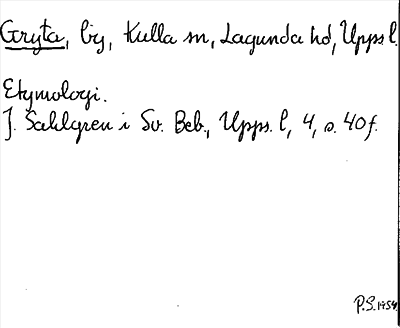 Gryta, by, Kulla sn, Lagunda hd, Upps l.
Etymologi.
J. Sahlgren i Sv. Beb., Upps. l, 4, s. 40f.
P.S. 1954